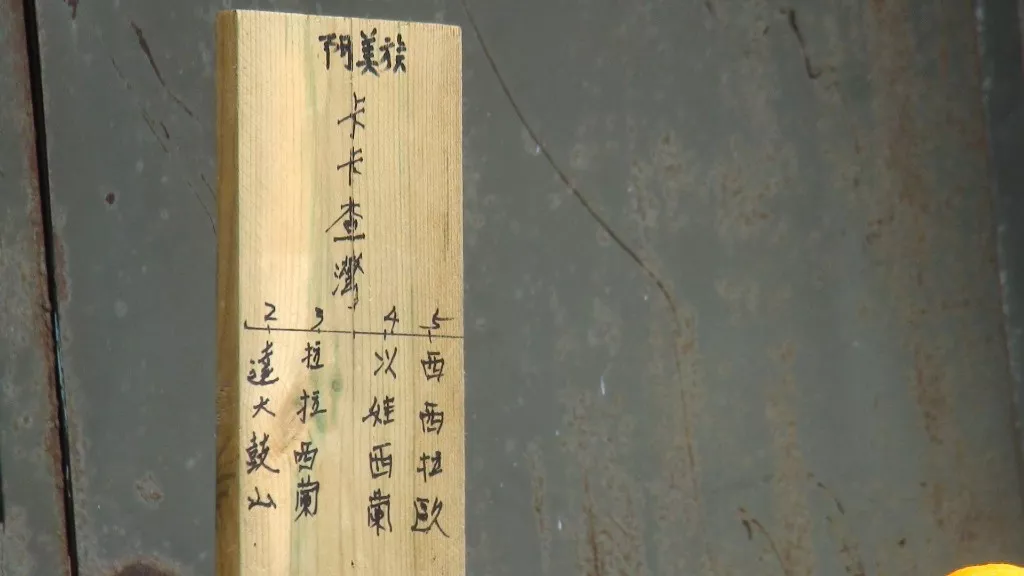 阿美族
卡卡查灣
2 3 4 5
達大鼓山
拉拉西蘭
以娃西蘭
西西拉歐